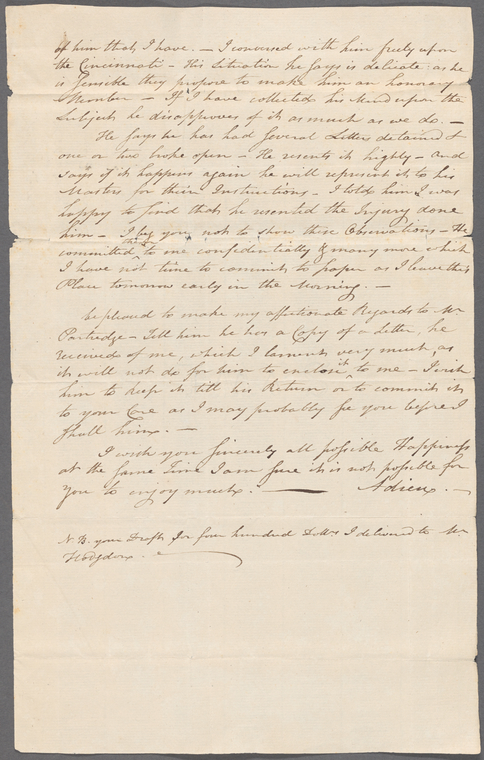 of him that I have. — I conversed with him freely upon
the Cincinnati — His Situation he says is delicate as he
is Sensible they propose to make him an honorary
Member — If I have collected his Mind upon the
Subject he disapproves of it as much as we do. —
He says he has had Several Letters detained &
one or two broke open — He resents it highly — and
says if it happens again he will represent it to his
Masters for their Instructions — I told him I was
happy to find that he resented the Injury done
him — I beg you not to show these Observations — He
committed them to me confidentially & many more which
I have not time to commit to paper as I leave this
Place tomorrow early in the Morning. —
be pleased to make my affectionate Regards to Mr
Partridge — Tell him he has a Copy of a Letter, he
received of me, which I lament very much, as
it will not do for him to enclose it to me — I wish
him to keep it till his Return or to commit it
to your Care as I may probably see you before I
shall him. —
I wish you Sincerely all possible Happiness
at the same Time I am sure it is not possible for
you to enjoy much. — Adieu. —
N.B. your Draft for four hundred Dollrs I delivered to Mr
Hodgdon. —